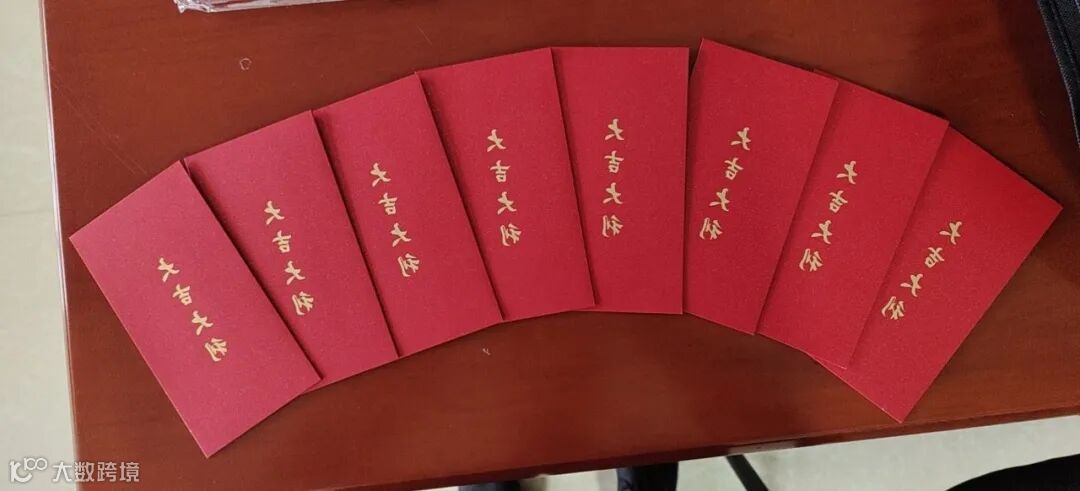 大吉大利
大吉大利
大吉大利
大吉大利
大吉大利
大吉大利
大吉大利
大吉大利
大数跨境